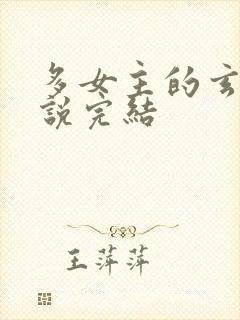 多女主的玄
說完結
王萍萍